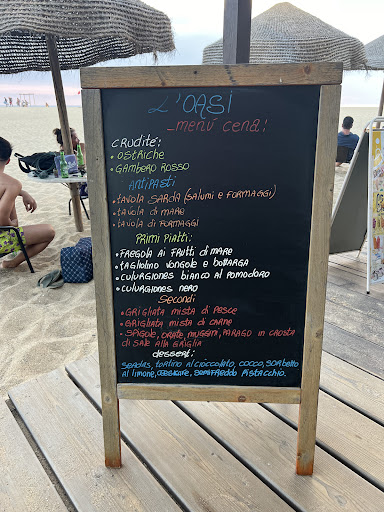 L'OASI
menú cena!
CRUDITÉ:
• OSTRICHE
• GAMBERO ROSSO
ANTIPASTI
• TAVOLA SARDA (SALUMI E FORMAGGI)
• TAVOLA DI MARE
• TAVOLA DI FORMAGGI
PRIMI PIATTI:
• FREGOLA AI FRUTTI DI MARE
• TAGLIOLINO VONGOLE E BOTTARGA
• CULURGIONES BIANCO AL POMODORO
• CULURGIONES NERO
SECONDI
• GRIGLIATA MISTA DI PESCE
• GRIGLIATA MISTA DI CARNE
• SPIGOLE, ORATE, MUGGINI, PARAGO IN CROSTA
DI SALE ALLA GRIGLIA
dessert:
SEADAS, tortino al cioccolato, cocco, sorbetto
al limone, SEMIFREDDO PISTACCHIO.